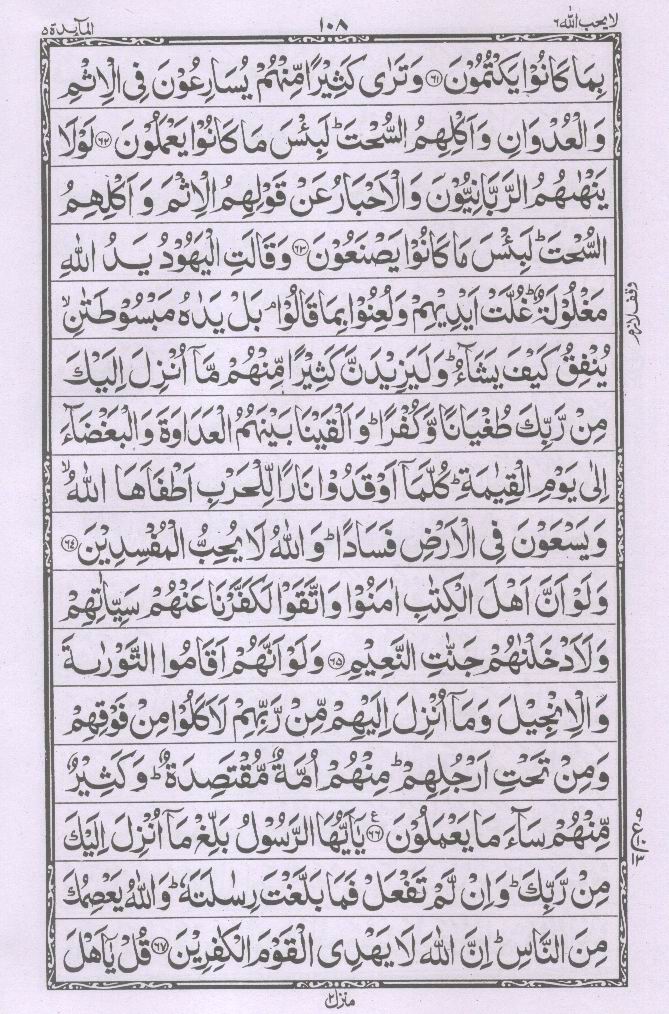 لا يحب الله ٦
١٠٨
المآئدة ٥
بِمَا كَانُوْا يَكْتُمُوْنَ ۝٦١ وَتَرٰى كَثِيْرًا مِّنْهُمْ يُسَارِعُوْنَ فِى الْاِثْمِ
وَالْعُدْوَانِ وَاَكْلِهِمُ السُّحْتَ ؕ لَبِئْسَ مَا كَانُوْا يَعْمَلُوْنَ ۝٦٢ لَوْلَا
يَنْهٰىهُمُ الرَّبَّانِيُّوْنَ وَالْاَحْبَارُ عَنْ قَوْلِهِمُ الْاِثْمَ وَاَكْلِهِمُ
السُّحْتَ ؕ لَبِئْسَ مَا كَانُوْا يَصْنَعُوْنَ ۝٦٣ وَقَالَتِ الْيَهُوْدُ يَدُ اللّٰهِ
مَغْلُوْلَةٌ ؕ غُلَّتْ اَيْدِيْهِمْ وَلُعِنُوْا بِمَا قَالُوْا ۘ بَلْ يَدٰهُ مَبْسُوْطَتٰنِ ۙ
يُنْفِقُ كَيْفَ يَشَآءُ ؕ وَلَيَزِيْدَنَّ كَثِيْرًا مِّنْهُمْ مَّاۤ اُنْزِلَ اِلَيْكَ
مِنْ رَّبِّكَ طُغْيَانًا وَّكُفْرًا ؕ وَاَلْقَيْنَا بَيْنَهُمُ الْعَدَاوَةَ وَالْبَغْضَآءَ
اِلٰى يَوْمِ الْقِيٰمَةِ ؕ كُلَّمَاۤ اَوْقَدُوْا نَارًا لِّلْحَرْبِ اَطْفَاَهَا اللّٰهُ ۙ
وَيَسْعَوْنَ فِى الْاَرْضِ فَسَادًا ؕ وَاللّٰهُ لَا يُحِبُّ الْمُفْسِدِيْنَ ۝٦٤
وَلَوْ اَنَّ اَهْلَ الْكِتٰبِ اٰمَنُوْا وَاتَّقَوْا لَكَفَّرْنَا عَنْهُمْ سَيِّاٰتِهِمْ
وَلَاَدْخَلْنٰهُمْ جَنّٰتِ النَّعِيْمِ ۝٦٥ وَلَوْ اَنَّهُمْ اَقَامُوا التَّوْرٰىةَ
وَالْاِنْجِيْلَ وَمَاۤ اُنْزِلَ اِلَيْهِمْ مِّنْ رَّبِّهِمْ لَاَكَلُوْا مِنْ فَوْقِهِمْ
وَمِنْ تَحْتِ اَرْجُلِهِمْ ؕ مِنْهُمْ اُمَّةٌ مُّقْتَصِدَةٌ ؕ وَكَثِيْرٌ
مِّنْهُمْ سَآءَ مَا يَعْمَلُوْنَ ۝٦٦ ع يٰۤاَيُّهَا الرَّسُوْلُ بَلِّغْ مَاۤ اُنْزِلَ اِلَيْكَ
مِنْ رَّبِّكَ ؕ وَاِنْ لَّمْ تَفْعَلْ فَمَا بَلَّغْتَ رِسٰلَتَهٗ ؕ وَاللّٰهُ يَعْصِمُكَ
مِنَ النَّاسِ ؕ اِنَّ اللّٰهَ لَا يَهْدِى الْقَوْمَ الْكٰفِرِيْنَ ۝٦٧ قُلْ يٰۤاَهْلَ
وقف لازم
منزل ٢